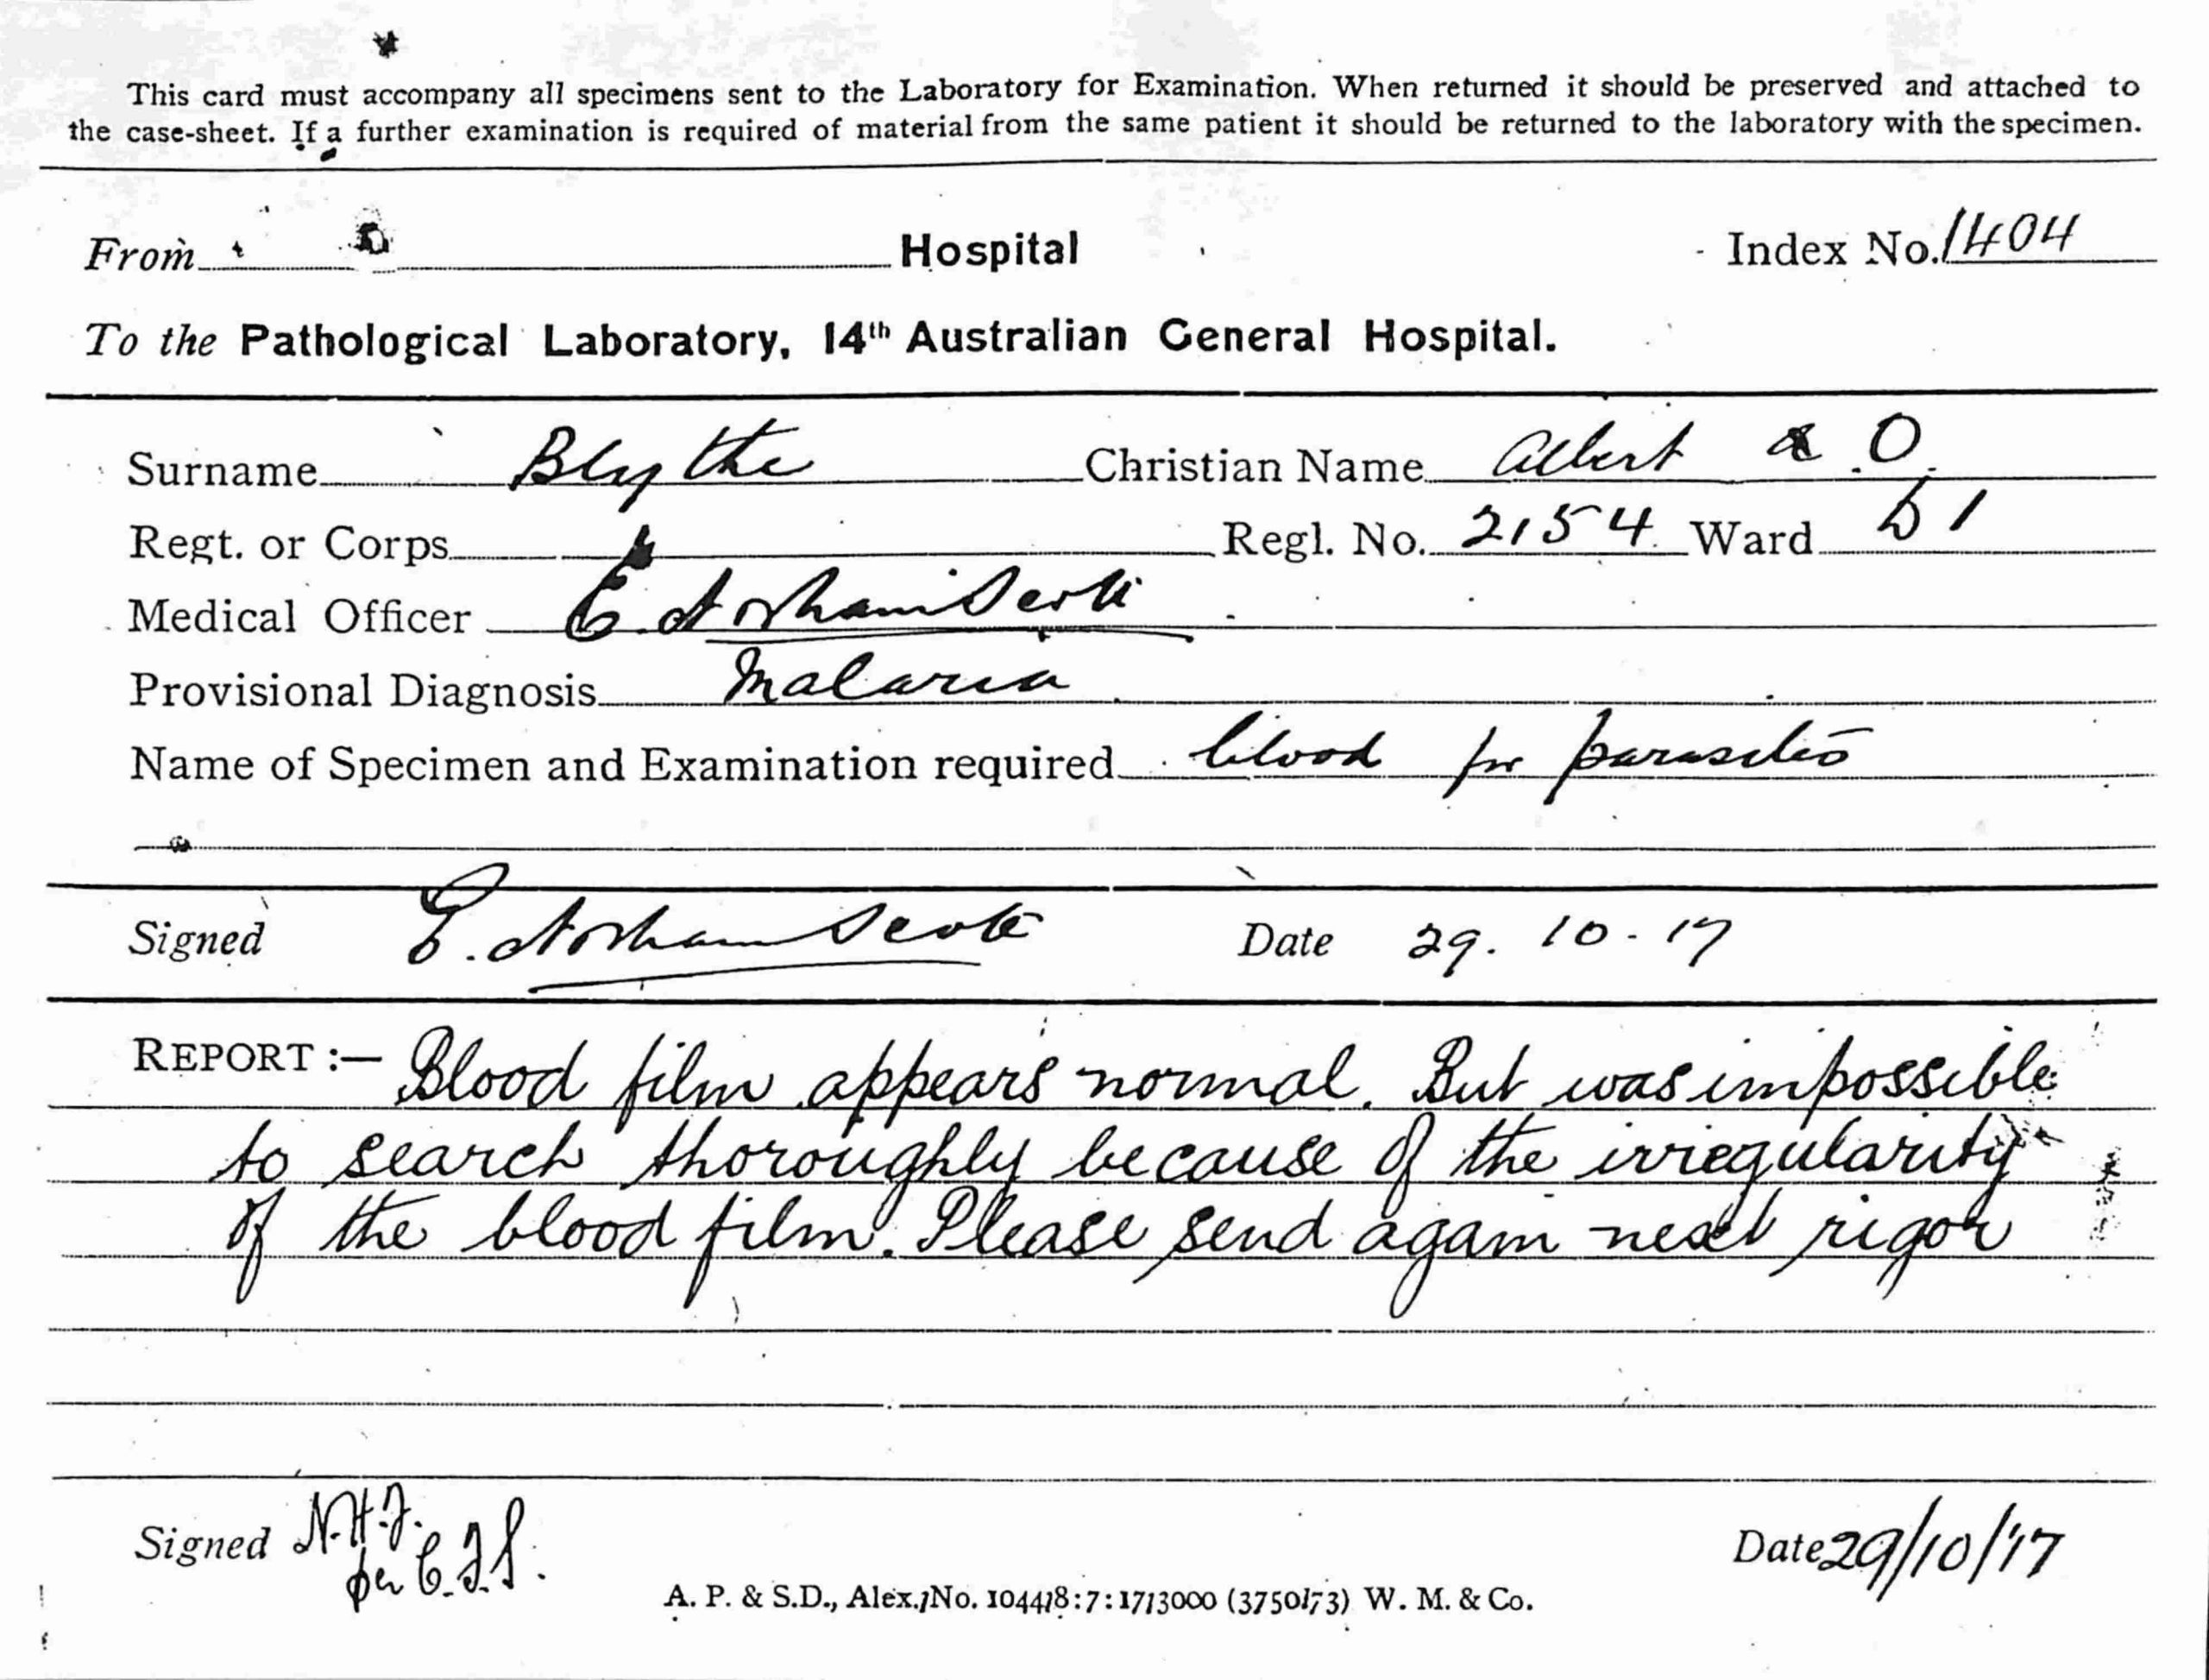 This card must accompany all specimens sent to the Laboratory for Examination. When returned it should be preserved and attached to
the case-sheet. If a further examination is required of material from the same patient it should be returned to the laboratory with the specimen.
From Hospital Index No. 1404
To the Pathological Laboratory, 14th Australian General Hospital.
Surname Blythe Christian Name Albert O.
Regt. or Corps Regl. No. 2154 Ward
Medical Officer E.
Provisional Diagnosis Malaria
Name of Specimen and Examination required blood for parasites
Signed E. Scott Date 29.10.17
REPORT :— Blood film appears normal. But was impossible
to search thoroughly because of the irregularity
of the blood film. Please send again next rigor
Signed N.H.J. Date 29/10/17
per
A. P. & S.D., Alex./No. 104418:7:17/3000 (3750/73) W. M. & Co.